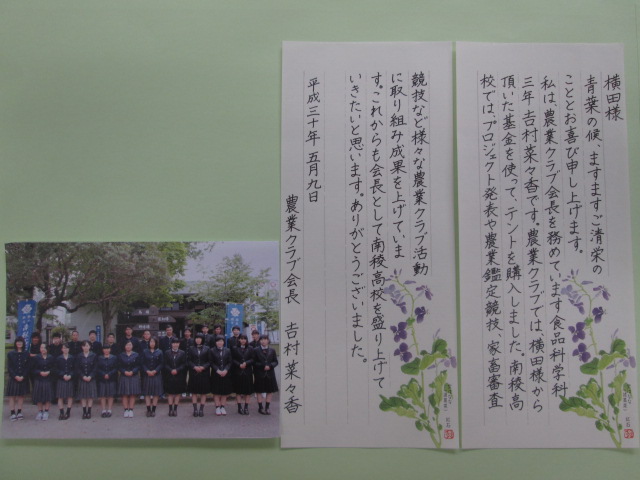 横田様
青葉の候、ますますご清栄の
こととお喜び申し上げます。
私は、農業クラブ会長を務めています食品科学科
三年 吉村菜々香です。農業クラブでは、横田様から
頂いた基金を使って、テントを購入しました。南稜高
校では、プロジェクト発表や農業鑑定競技、家畜審査
競技など様々な農業クラブ活動
に取り組み成果を上げていま
す。これからも会長として南稜高校を盛り上げて
いきたいと思います。ありがとうございました。
平成三十年 五月九日
農業クラブ会長 吉村菜々香